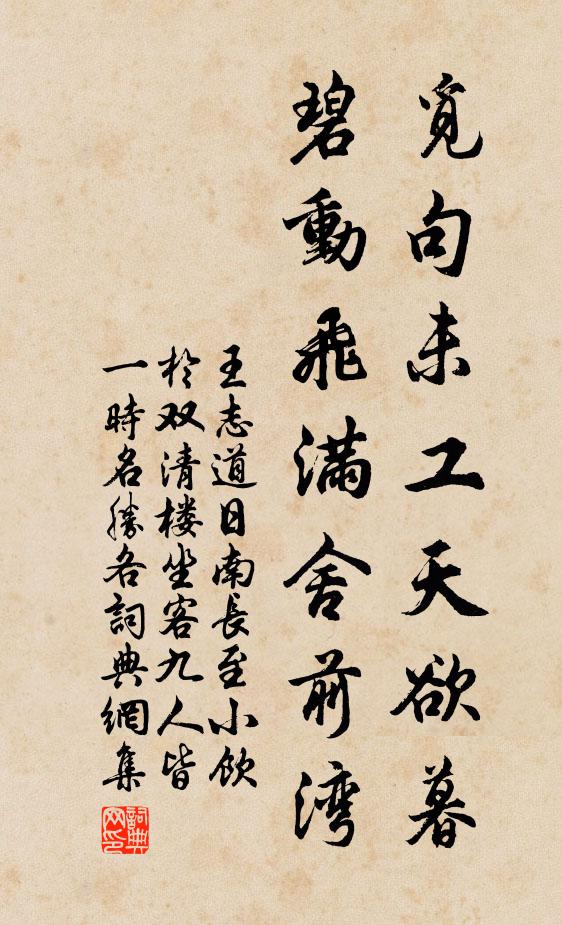 覓句未工天欲暮
碧動飛滿舍前湾
王志道日南長至小飲
於双清楼坐客九人皆
一時名勝各詞典網集
詞典网印